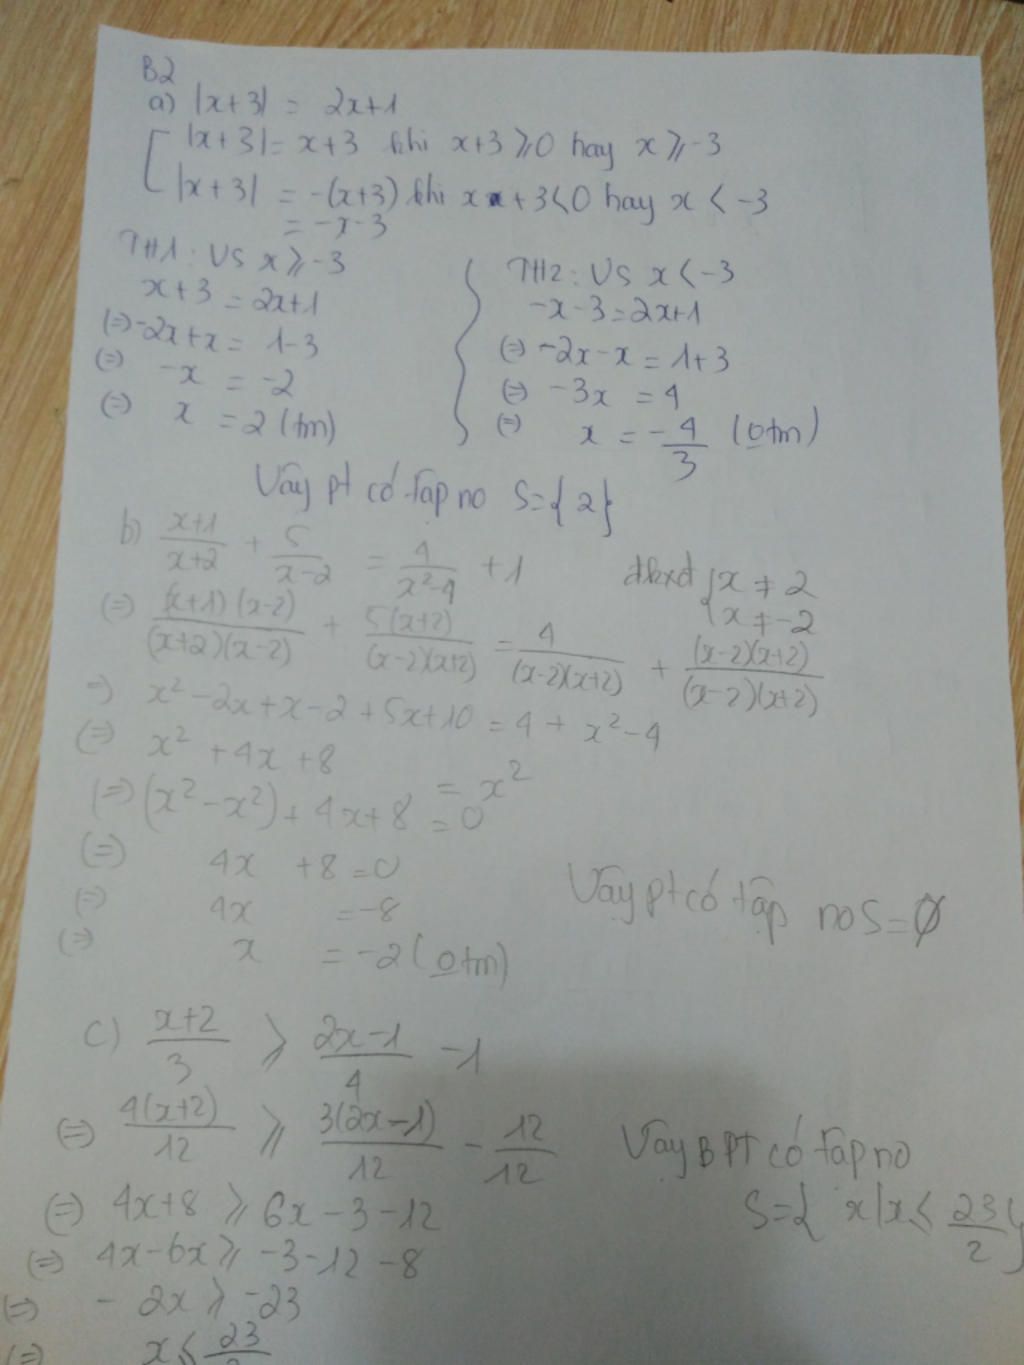 B2
a) |x+3| = 2x+1
|x+3| = x+3 khi x+3 ⩾ 0 hay x ⩾ -3
|x+3| = -(x+3) khi x + 3 < 0 hay x < -3
= -x-3
TH1: Vs x ⩾ -3
x+3 = 2x+1
(=) -2x+x = 1-3
(=) -x = -2
(=) x = 2 (tm)
TH2: Vs x < -3
-x-3 = 2x+1
(=) -2x-x = 1+3
(=) -3x = 4
(=) x = -4/3 (0tm)
Vậy pt có tập no S={2}
b) (x+1)/(x+2) + 5/(x-2) = 4/(x²-4) + 1 đkxđ {x ≠ 2
x ≠ -2
(=) (x+1)(x-2)/(x+2)(x-2) + 5(x+2)/(x-2)(x+2) = 4/(x-2)(x+2) + (x-2)(x+2)/(x-2)(x+2)
=) x²-2x+x-2+5x+10 = 4 + x²-4
(=) x² + 4x + 8 = x²
(=) (x²-x²) + 4x+8 = 0
(=) 4x +8 = 0
(=) 4x = -8
(=) x = -2 (0tm)
Vậy pt có tập no S=Ø
c) (x+2)/3 ⩾ (2x-1)/4 -1
(=) 4(x+2)/12 ⩾ 3(2x-1)/12 - 12/12
(=) 4x+8 ⩾ 6x-3-12
(=) 4x-6x ⩾ -3-12-8
(=) -2x ⩾ -23
(=) x ⩽ 23/2
Vậy BPT có tập no
S={x|x⩽ 23/2}